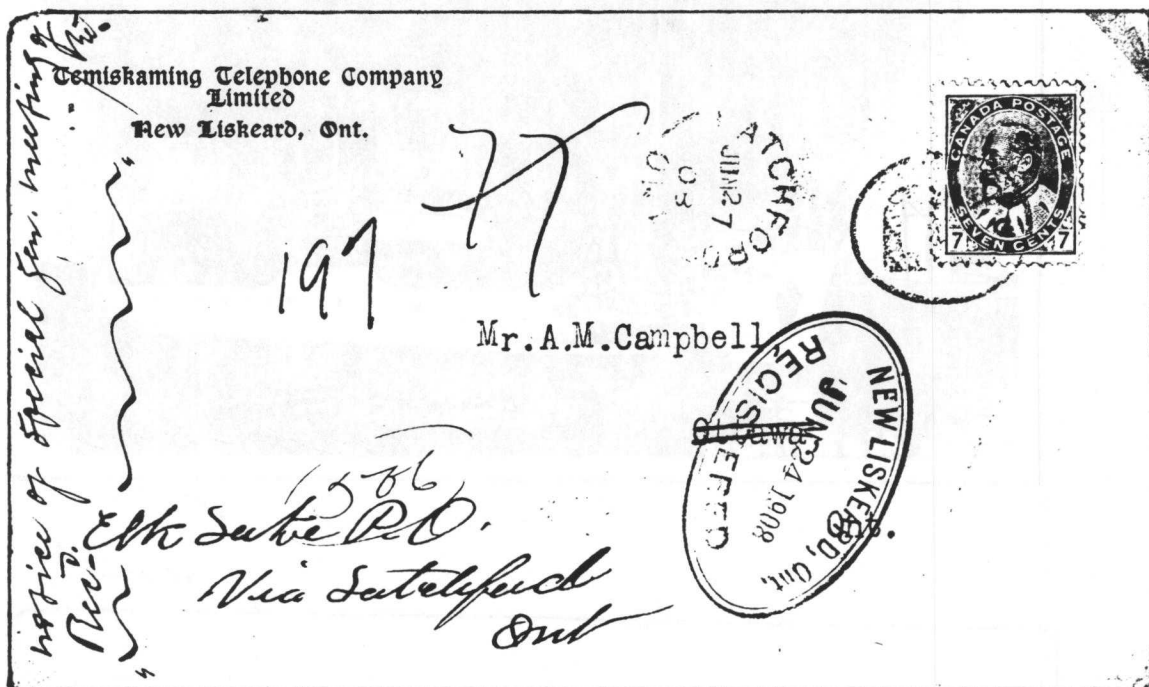 Temiskaming Telephone Company
Limited
New Liskeard, Ont.
notice of special gen. meeting
197
ATCHFORD
JUN 27
08
CANADA POSTAGE
SEVEN CENTS
7 7
Mr.A.M.Campbell
Ottawa
Ont.
NEW LISKEARD, Ont.
JUN 24 1908
REGISTERED
1586
Elk Lake P.O.
Via Latchford
Ont